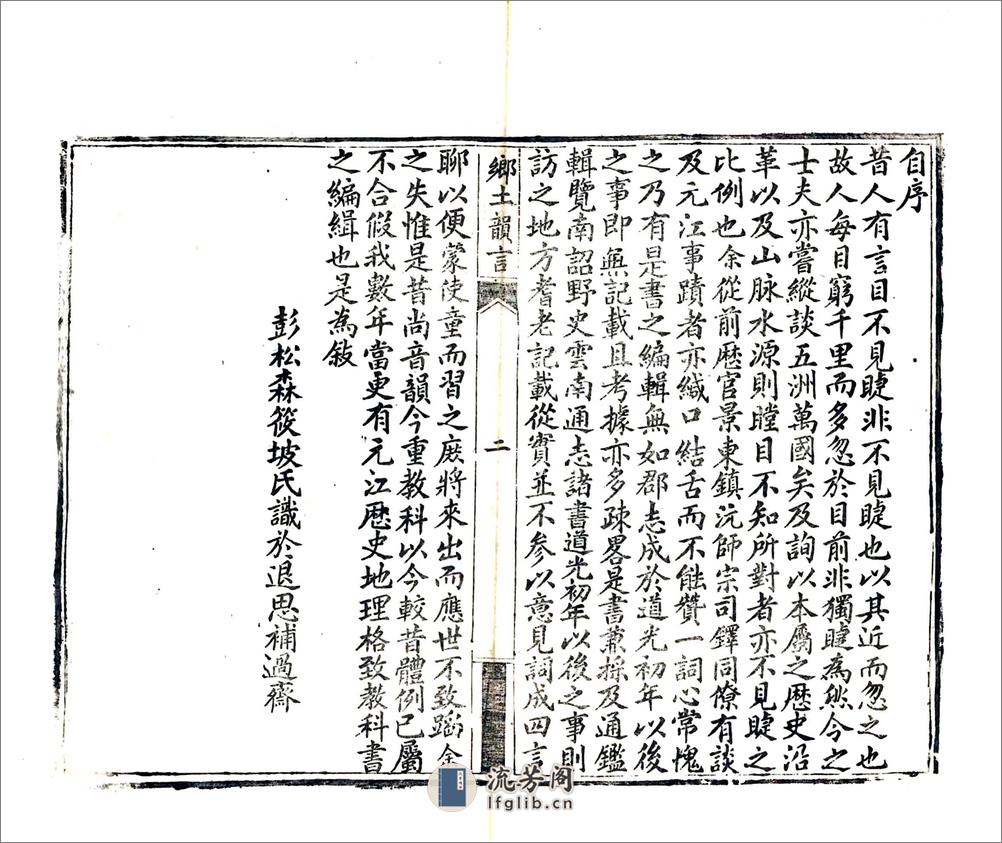 自序
昔人有言目不見睫非不見睫也以其近而忽之也
故人每目窮千里而多忽於目前非獨睫為然今之
士夫亦嘗縱談五洲萬國矣及詢以本屬之歷史沿
革以及山脉水源則瞠目不知所對者亦不見睫之
比例也余從前歷官景東鎮沅師宗司鐸同僚有談
及元江事蹟者亦緘口結舌而不能贊一詞心常愧
之乃有是書之編輯無如郡志成於道光初年以後
之事即無記載且考據亦多疎畧是書兼採及通鑑
輯覽南詔野史雲南通志諸書道光初年以後之事則
訪之地方耆老記載從實並不參以意見詞成四言
鄉土韻言
二
聊以便蒙使童而習之庶將來出而應世不致蹈余
之失惟是昔尚音韻今重教科以今較昔體例已屬
不合假我數年當更有元江歷史地理格致教科書
之編緝也是為敘
彭松森筱坡氏識於退思補過齋
流芳阁
lfglib.cn